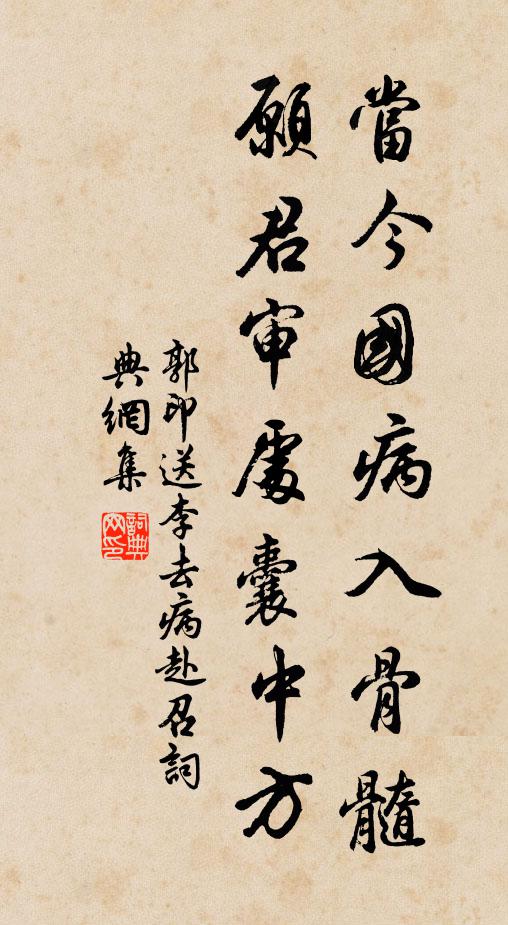 當今國病入骨髓
願君审處囊中方
郭印送李去病赴召詞
典網集
詞典網印